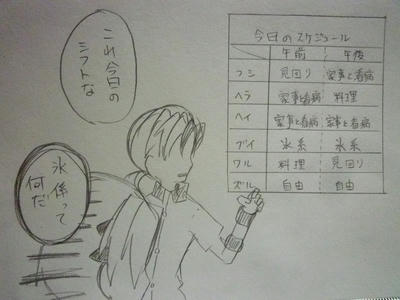 これ今日の
シフトな
氷係って
何だ
今日のスケジュール
午前 午後
フシ 見回り 家事と看病
ヘラ 家事と看病 料理
ヘイ 家事と看病 家事と看病
ブイ 氷系 氷系
ワル 料理 見回り
ズル 自由 自由